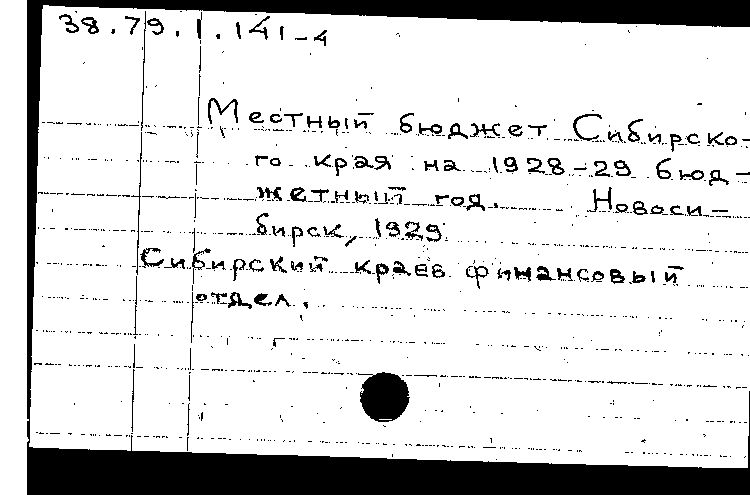 38.79.1.141-4
Местный бюджет Сибирско-
го края на 1928-29 бюд-
жетный год. Новоси-
бирск, 1929
Сибирский краев финансовый
отдел.